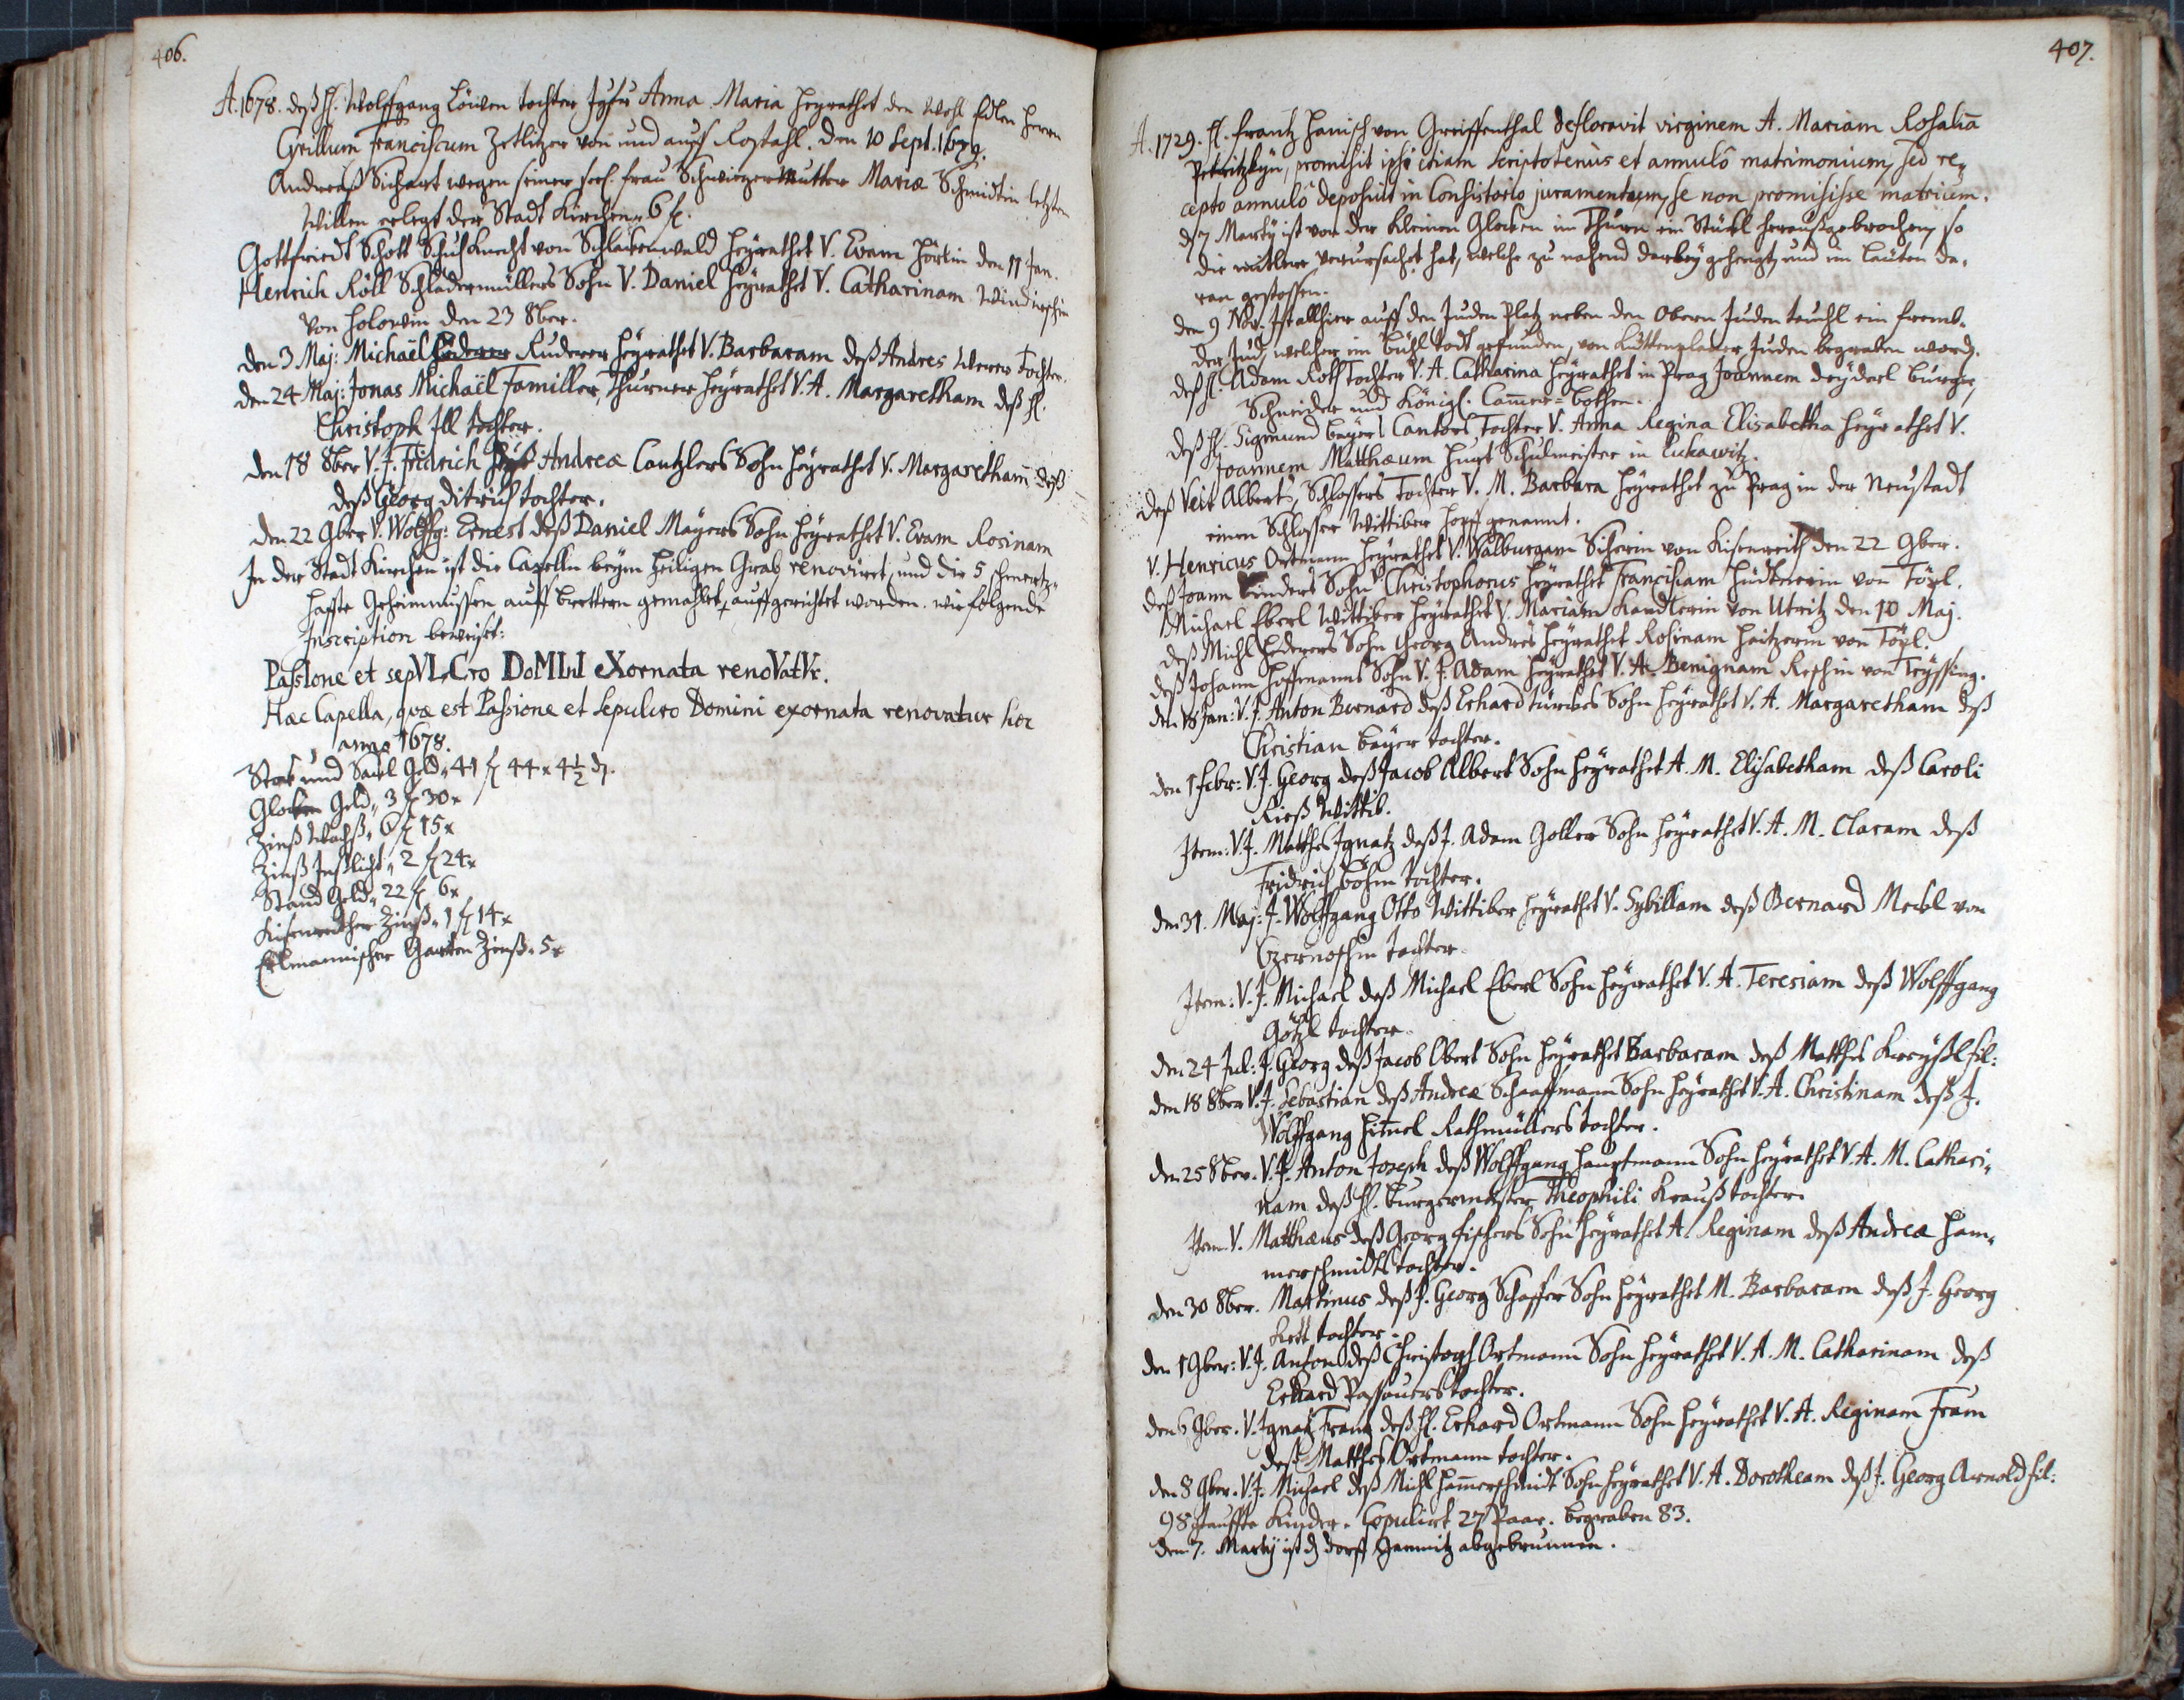 406.
A. 1678. deß H. Wolffgang Löwen tochter Jgfr Anna Maria heyrathet den Wohl Edlen Herrn
Cyrillum Franciscum Zetlitzer von und auff . den 10 Sept. 1679.
Andreas Sichart wegen seiner seel. frau Schwiegermutter Mariæ Schmidtin letzten
Willen erlegt der Stadt Kirchen 6 f.
Gottfriedt Schott Schuhknecht von Schlackenwald heyrathet V. Evam Hörlin den 11 Jan.
Henrich Röll Schladermüllers Sohn V. Daniel heyrathet V. Catharinam
von Holewin den 23 8ber.
den 3 Maj: Michaël Ruderer heyrathet V. Barbaram deß Andres Werer Tochter.
den 24 Maj: Jonas Michaël Familler, Thurner heyrathet V. A. Margaretham deß H.
Christoph Ill tochter.
den 18 8ber V. J. Fridrich Andreæ Cantzlers Sohn heyrathet V. Margaretham deß
deß Georg Ditrich tochter.
den 22 9ber V. Wolffg: Ernest deß Daniel Mayers Sohn heyrathet V. Evam Rosinam
In der Stadt Kirchen ist die Capelln beym heiligen Grab renoviret, und die 5 schmertz-
haffte Geheimnussen auff brettern gemahlet, auffgerichtet worden. wie folgende
Inscription beweiset:
PassIone et sepVLCro DoMInI eXornata renoVatVr.
Hæc Capella, quæ est Passione et Sepulcro Domini exornata renovatur hoc
anno 1678.
Stock und Säckl Geld 41 f 44 x 4½ d.
Glocken Geld 3 f 30 x
Zinß Wachß 6 f 15 x
Zinß Inslicht 2 f 24 x
Stand Geld 22 f 6 x
Zinß 1 f 14 x
Garten Zinß 5 x
407.
A. 1729. H. Frantz Hanisch von Greiffenthal defloravit virginem A. Mariam Rosaliā
, promisit ipsi etiam scriptotenus et annulô matrimonium, sed re-
cepto annulô deposuit in Consistorio juramentum, se non promisisse matrium.
d 7 Marty ist von der kleinen Glocken im Thurn ein Stückl heraußgebrochen, so
die verursachet hat, welche zu nahend darbey gehengt, und im lauten da-
ran gestossen.
den 9 Nov. Ist allhier auff den Juden Platz neben den Obern Juden teuchl ein fremb-
der Jud, welcher im bühl todt gefunden, von Kuttenplaner Juden begraben word.
deß H. Adam Roth Tochter V. A. Catharina heyrathet in Prag Joannem burger,
Schneider und Königl. Cammer-bothen.
deß H. Sigmund beyers Cantors Tochter V. Anna Regina Elisabetha heyrathet V.
Joannem Matthæum Schulmeister in Lukawitz.
deß Veit Alberts, Schlossers Tochter V. M. Barbara heyrathet zu Prag in der Neustadt
einen Schlosser Wittiber Hopf genannt.
V. Henricus Ortmann heyrathet V. Walburgam Sicherin von den 22 9ber.
deß Joann Sohn Christophorus heyrathet Franciscam von Töpl.
Michael Eberl Wittiber heyrathet V. Mariam Kandlerin von Utwitz den 10 Maj.
deß Michl Sohn Georg Andres heyrathet Rosinam Heitzerin von Töpl.
deß Johann Hoffmanns Sohn V. J. Adam heyrathet V. A. Benignam von Tryssing.
den 18 Jan: V. J. Anton Bernard deß Erhard Sohn heyrathet V. A. Margaretham deß
Christian beyer tochter.
den 1 Febr: V. J. Georg deß Jacob Albert Sohn heyrathet A. M. Elisabetham deß Caroli
Rieß Wittib.
Item: V. J. Matthes Ignatz deß J. Adam Goller Sohn heyrathet V. A. M. Claram deß
Fridrich böhm tochter.
den 31. Maj: J. Wolffgang Otto Wittiber heyrathet V. Sybillam deß Bernard Meckl von
Czernoschin tochter.
Item: V. J. Michael deß Michael Eberl Sohn heyrathet V. A. Teresiam deß Wolffgang
Götzl tochter.
den 24 Jul: J. Georg deß Jacob Obert Sohn heyrathet Barbaram deß Matthes fil:
den 18 8ber V. J. Sebastian deß Andreæ Schaffmann Sohn heyrathet V. A. Christinam deß J.
Wolffgang Himel Rathmüllers tochter.
den 25 8ber. V. J. Anton Joseph deß Wolffgang Hauptmann Sohn heyrathet V. A. M. Cathari-
nam deß H. burgermeister Theophili Krauß tochter.
Item V. Matthæus deß Georg fischers Sohn heyrathet A. Reginam deß Andreæ Ham-
merschmidts tochter.
den 30 8ber. Martinus deß J. Georg Schaffer Sohn heyrathet M. Barbaram deß J. Georg
tochter.
den 1 9ber: V. J. Anton deß Christoph Ortmann Sohn heyrathet V. A. M. Catharinam deß
Erhard Passauers tochter.
den 6 9ber. V. Ignatz Frantz deß H. Erhard Ortmann Sohn heyrathet V. A. Reginam
deß Matthes Ortmann tochter.
den 8 9ber. V. J. Michael deß Michl Hamerschmidt Sohn heyrathet V. A. Dorotheam deß J. Georg Arnold fil:
98 gtauffte Kinder. Copulirt 27 Paar. begraben 83.
den 7. Marty ist d dorff abgebrunnen.